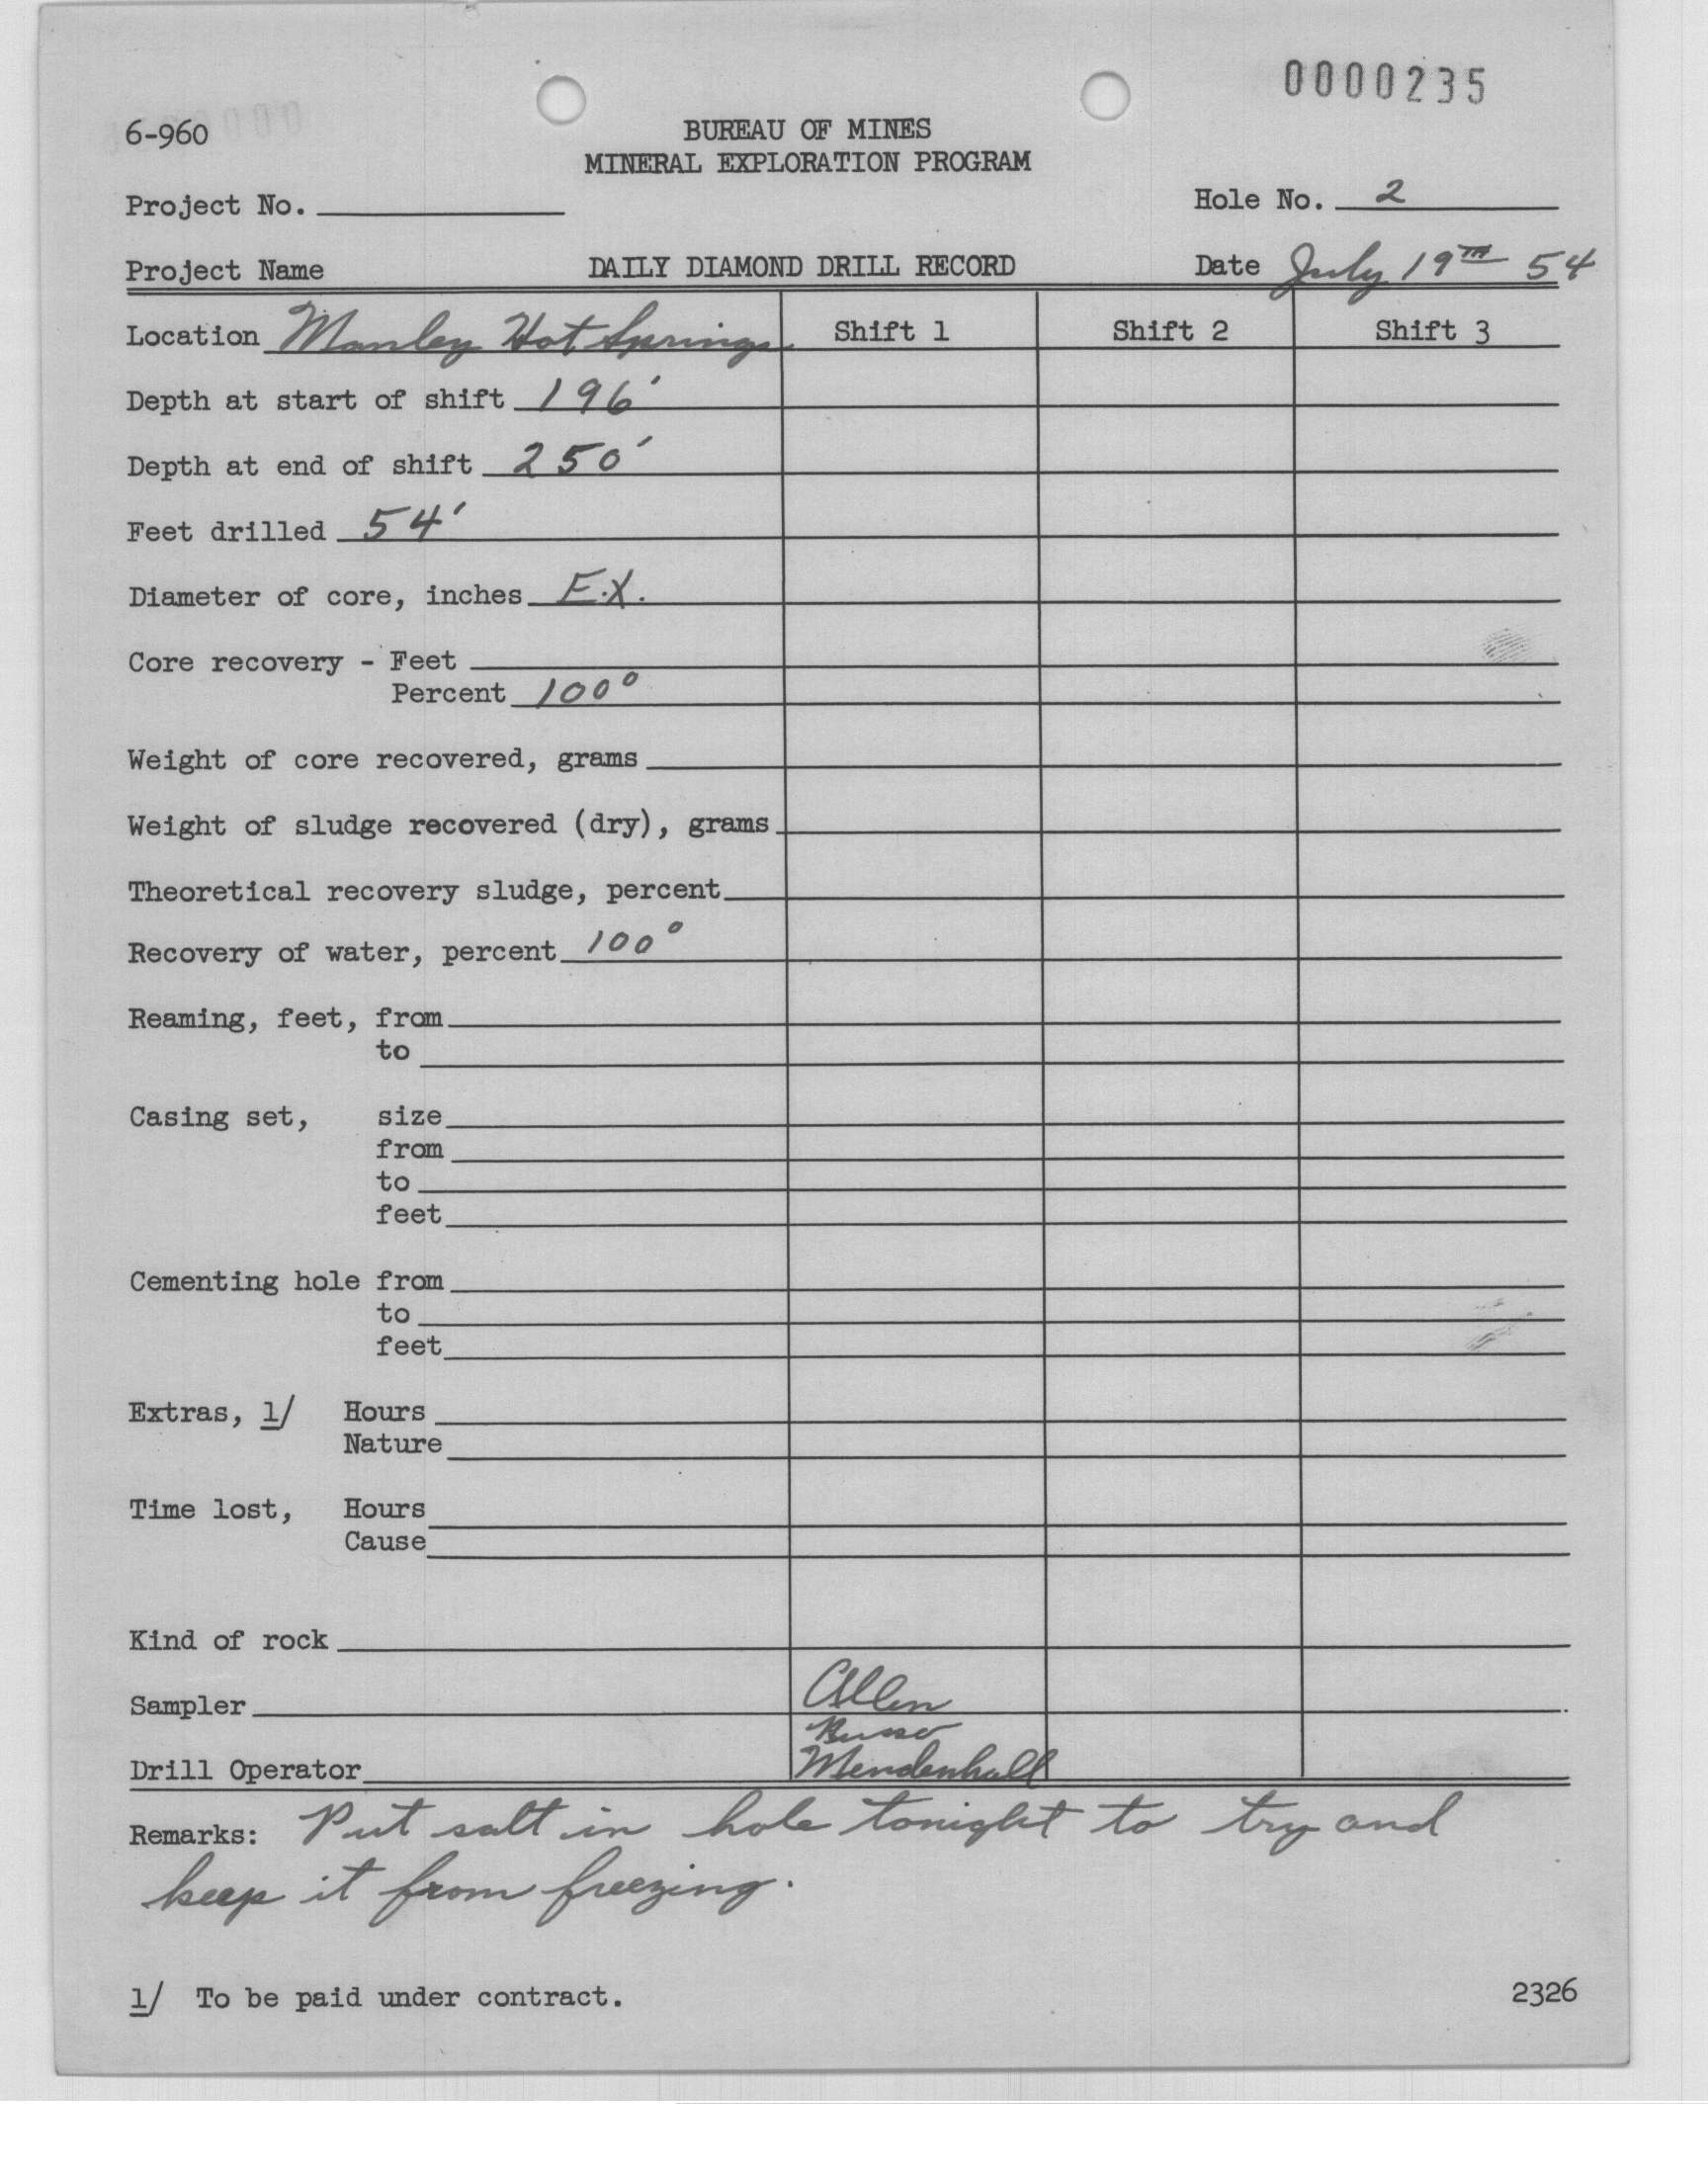 0000235
6-960
BUREAU OF MINES
MINERAL EXPLORATION PROGRAM
Project No.
Hole No. 2
Project Name
DAILY DIAMOND DRILL RECORD
Date July 19TH 54
Location Manley Hot Springs Shift 1 Shift 2 Shift 3
Depth at start of shift 196'
Depth at end of shift 250'
Feet drilled 54'
Diameter of core, inches E.X.
Core recovery - Feet
Percent 100°
Weight of core recovered, grams
Weight of sludge recovered (dry), grams
Theoretical recovery sludge, percent
Recovery of water, percent 100°
Reaming, feet, from
to
Casing set, size
from
to
feet
Cementing hole from
to
feet
Extras, 1/ Hours
Nature
Time lost, Hours
Cause
Kind of rock
Sampler Allen
Drill Operator Mendenhall
Remarks: Put salt in hole tonight to try and
keep it from freezing.
1/ To be paid under contract.
2326